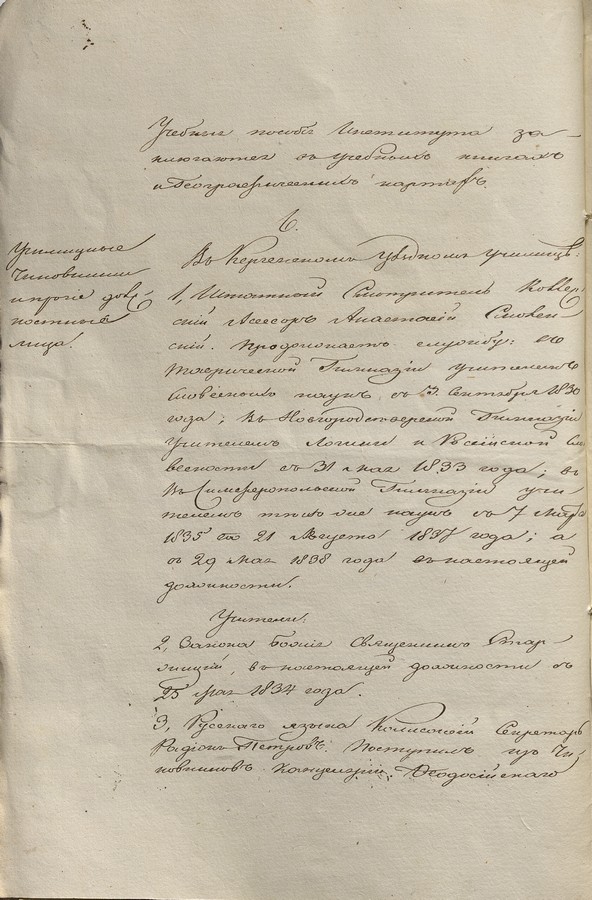 Учебныя пособія Института за-
ключаются въ учебныхъ книгахъ
и Географическихъ картахъ.
6.
Училищные
Чиновники
и прочіе долж
ностные
лица.
Въ Керченскомъ Уѣздномъ Училищѣ:
1, Штатный Смотритель Коллеж
скій Асессоръ Анастасій
скій. Продолжаетъ службу: въ
Таврической Гимназіи учителемъ
словесныхъ наукъ съ 3 Сентября 1830
года; въ Новгородсѣверской Гимназіи
Учителемъ Логики и Россійской Сло
весности съ 31 мая 1833 года; въ
Симферопольской Гимназіи учи
телемъ тѣхъ же наукъ съ 7 Марта
1835 по 21 Августа 1837 года; а
съ 29 мая 1838 года въ настоящей
должности.
Учители:
2, Закона Божія Священникъ
въ настоящей должности съ
25 мая 1834 года.
3, Русскаго языка Колежскій Секретарь
Родіонъ Петровъ. Поступилъ изъ Чи
новниковъ Канцеляріи Ѳеодосійскаго